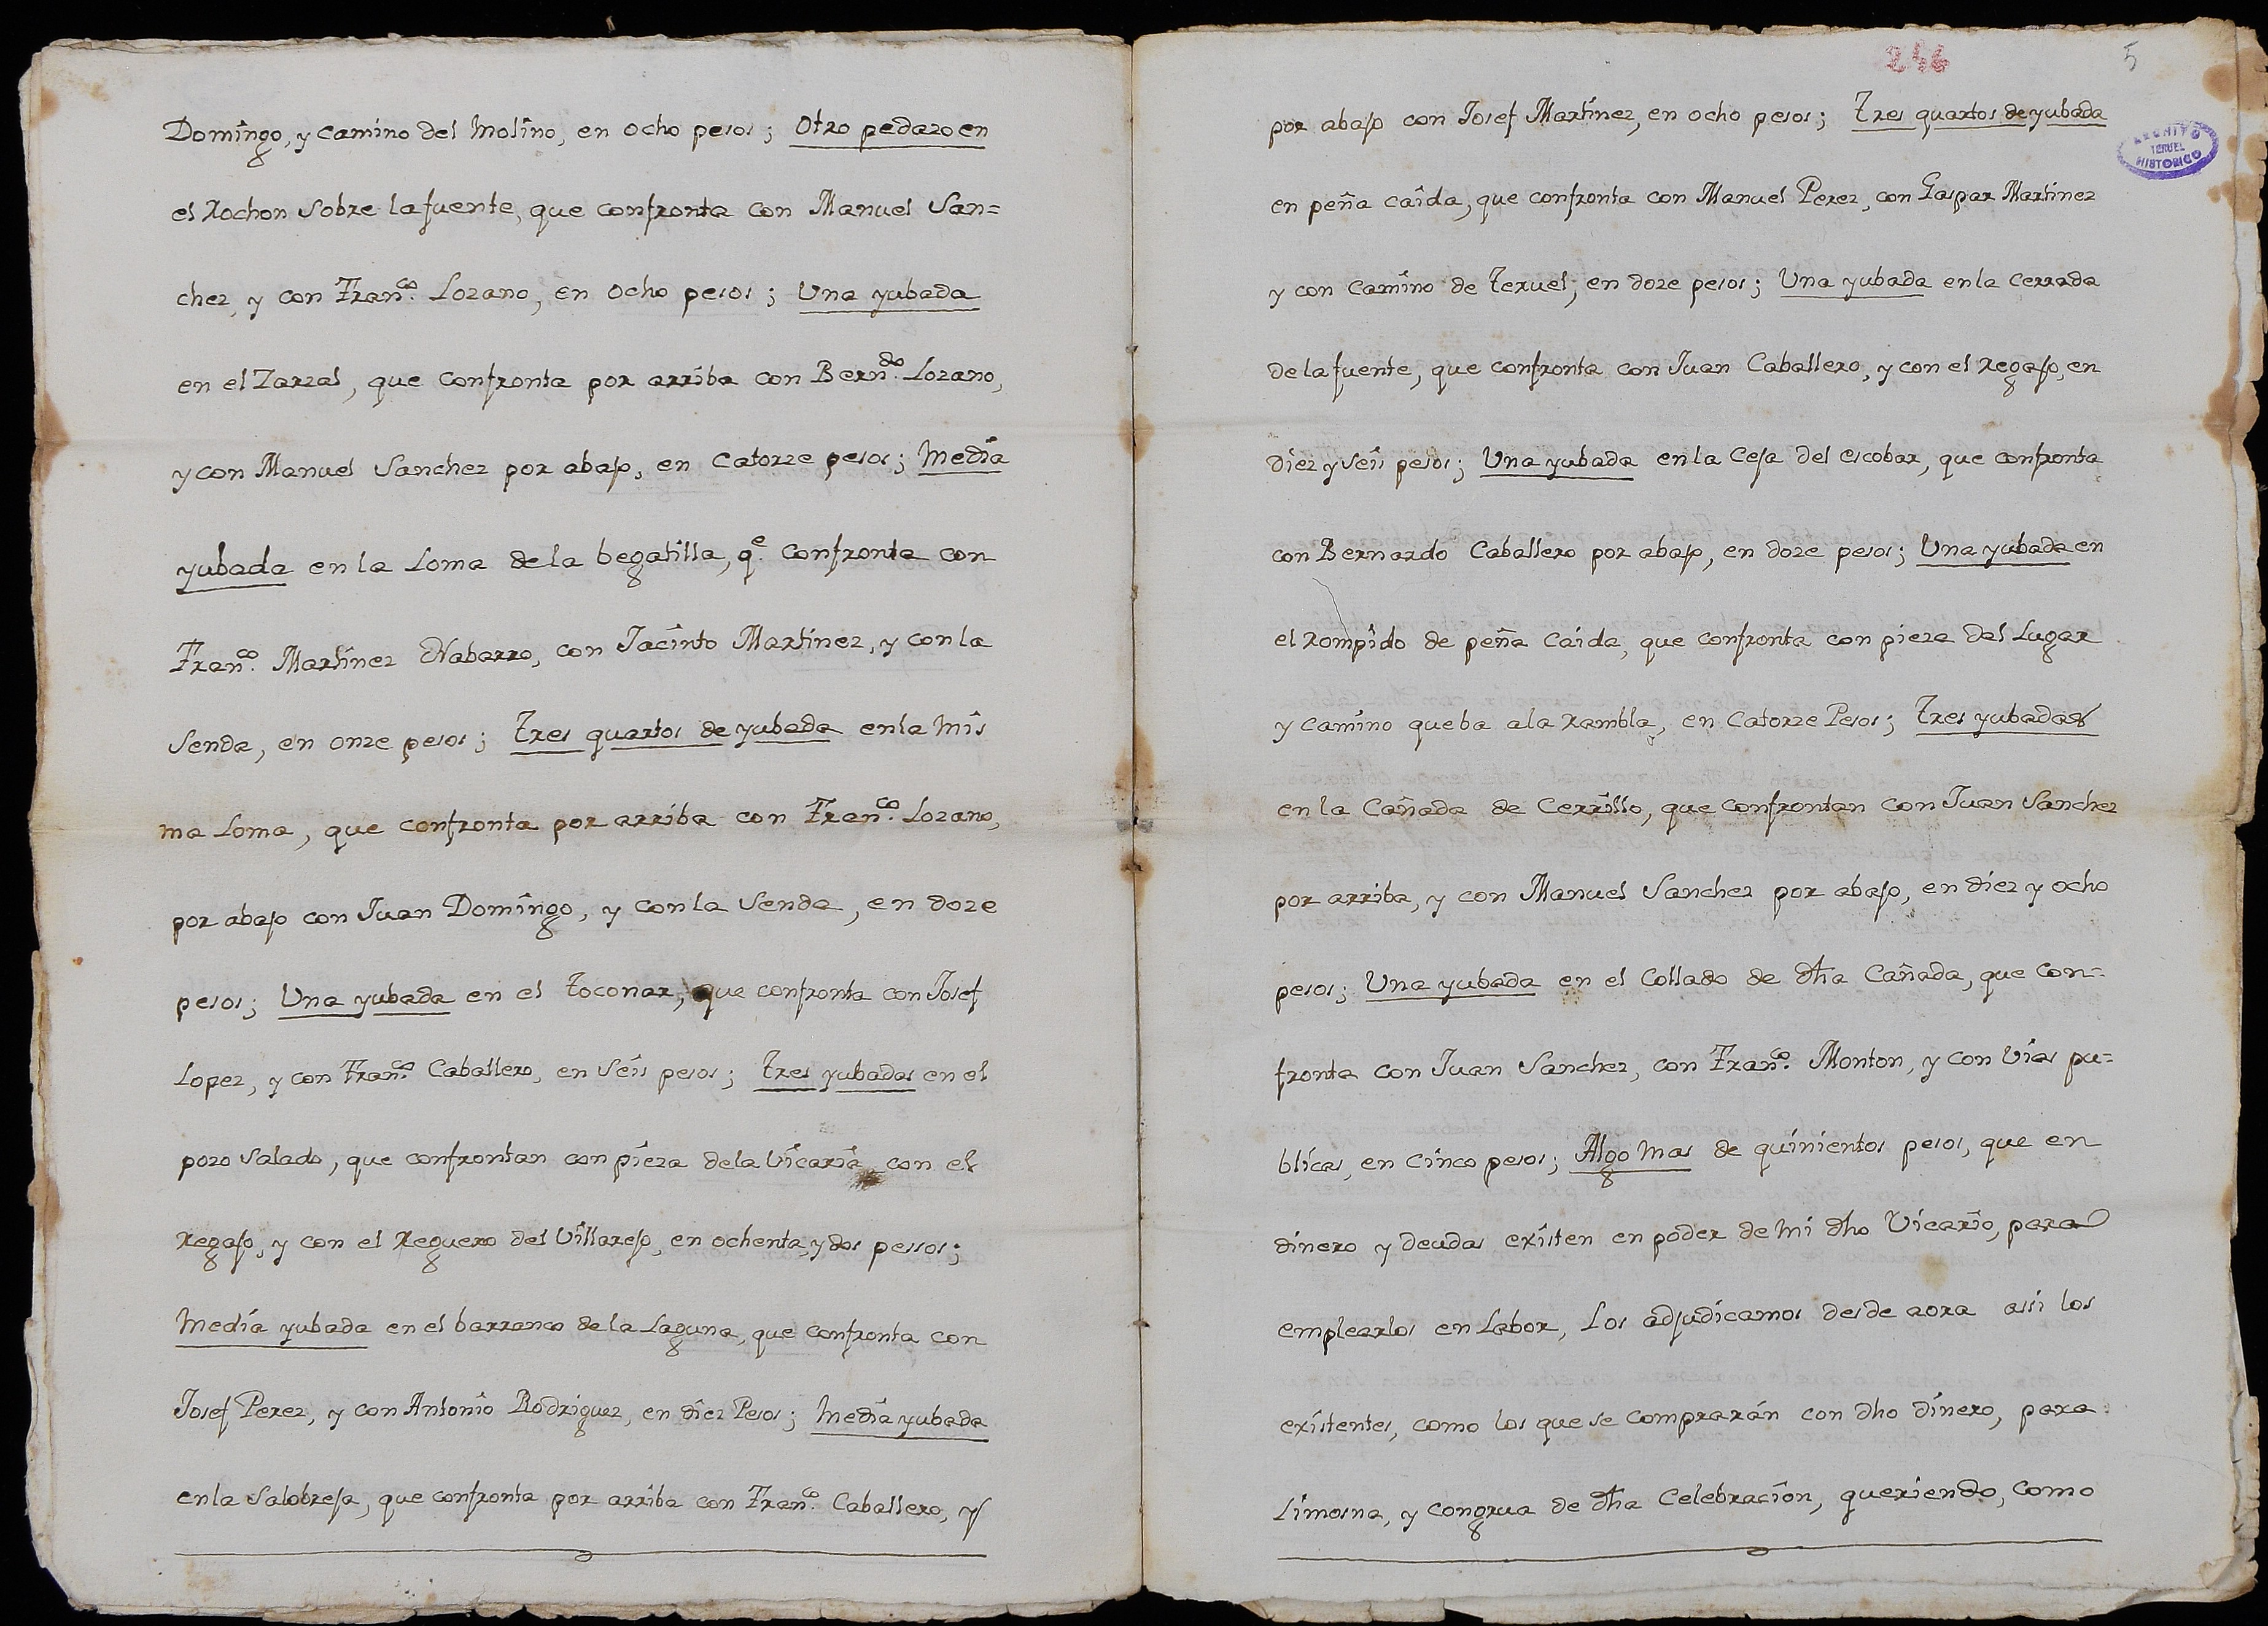 Domingo, y camino del Molino, en ocho pesos; Otro pedazo en
el Rochon sobre la fuente, que confronta con Manuel San=
chez, y con Fran.co Lozano, en ocho pesos; Una yubada
en el Zarzal, que confronta por arriba con Bern.do Lozano,
y con Manuel Sanchez por abajo, en Catorze pesos; Media
yubada en la Loma de la begatilla, q.e confronta con
Fran.co Martinez Nabarro, con Jacinto Martinez, y con la
Senda, en onze pesos; tres quartos de yubada en la Mis
ma Loma, que confronta por arriba con Fran.co Lozano,
por abajo con Juan Domingo, y con la Senda, en doze
pesos; Una yubada en el toconar, que confronta con Josef
Lopez, y con Fran.co Caballero, en seis pesos; tres yubadas en el
pozo salado, que confrontan con pieza de la Vicaria con el
Regajo, y con el Reguero del Villarejo, en ochenta, y dos pessos;
Media yubada en el barranco de la Laguna, que confronta con
Josef Perez, y con Antonio Rodriguez, en diez Pesos; Media yubada
en la Salobreja, que confronta por arriba con Fran.co Caballero, y
246
5
ARCHIVO
TERUEL
HISTORICO
por abajo con Josef Martinez, en ocho pesos; tres quartos de yubada
en peña caida, que confronta con Manuel Perez, con Gaspar Martinez
y con Camino de teruel, en doze pesos; Una yubada en la Cerrada
de la fuente, que confronta con Juan Caballero, y con el Regajo, en
diez y seis pesos; Una yubada en la Ceja del escobar, que confronta
con Bernardo Caballero por abajo, en doze pesos; Una yubada en
el Rompido de peña Caida, que confronta con pieza del Lugar
y camino que ba a la Rambla, en Catorze Pesos; tres yubadas
en la Cañada de Cerrillo, que confrontan con Juan Sanchez
por arriba, y con Manuel Sanchez por abajo, en diez y ocho
pesos; Una yubada en el Collado de dha Cañada, que con=
fronta con Juan Sanchez, con Fran.co Monton, y con Vias pu=
blicas, en Cinco pesos; Algo mas de quinientos pesos, que en
dinero y deudas existen en poder de Mi dho Vicario, para
emplearlos en Labor, Los adjudicamos desde aora assi los
existentes, como los que se comprarán con dho dinero, para
Limosna, y congrua de dha Celebracion, queriendo, como